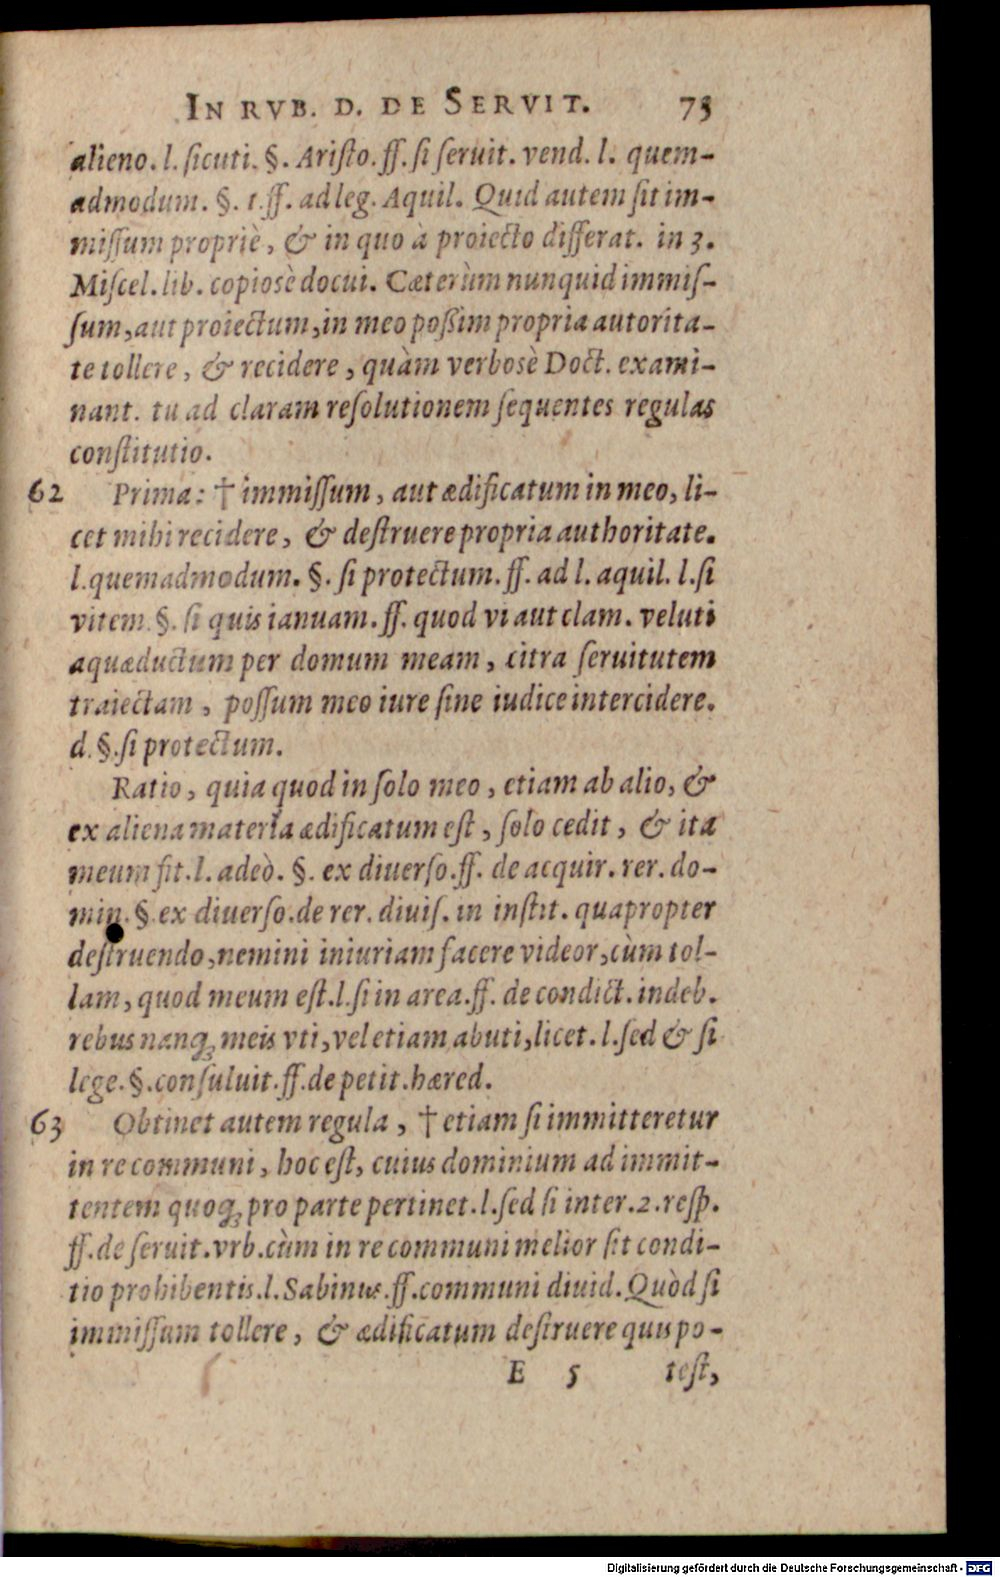 IN RVB. D. DE SERVIT. 73
alieno. l. sicuti. §. Aristo. ff. si seruit. vend. l. quem-
admodum. §. 1. ff. ad leg. Aquil. Quid autem sit im-
missum propriè, & in quo à proiecto differat. in 3.
Miscel. lib. copiosè docui. Cæterùm nunquid immis-
sum, aut proiectum, in meo possim propria autorita-
te tollere, & recidere, quàm verbosè Doct. exami-
nant. tu ad claram resolutionem sequentes regulas
constitutio.
62 Prima: † immissum, aut ædificatum in meo, li-
cet mihi recidere, & destruere propria authoritate.
l. quemadmodum. §. si protectum. ff. ad l. aquil. l. si
vitem. §. si quis ianuam. ff. quod vi aut clam. veluti
aquæductum per domum meam, citra seruitutem
traiectam, possum meo iure sine iudice intercidere.
d. §. si protectum.
Ratio, quia quod in solo meo, etiam ab alio, &
ex aliena materia ædificatum est, solo cedit, & ita
meum fit. l. adeò. §. ex diuerso. ff. de acquir. rer. do-
min. §. ex diuerso. de rer. diuis. in instit. quapropter
destruendo, nemini iniuriam facere videor, cùm tol-
lam, quod meum est. l. si in area. ff. de condict. indeb.
rebus nanq; meis vti, vel etiam abuti, licet. l. sed & si
lege. §. consuluit. ff. de petit. hæred.
63 Obtinet autem regula, † etiam si immitteretur
in re communi, hoc est, cuius dominium ad immit-
tentem quoq; pro parte pertinet. l. sed si inter. 2. resp.
ff. de seruit. vrb. cùm in re communi melior sit condi-
tio prohibentis. l. Sabinus. ff. communi diuid. Quòd si
immissum tollere, & ædificatum destruere quis po-
E 5 test,
Digitalisierung gefördert durch die Deutsche Forschungsgemeinschaft - DFG